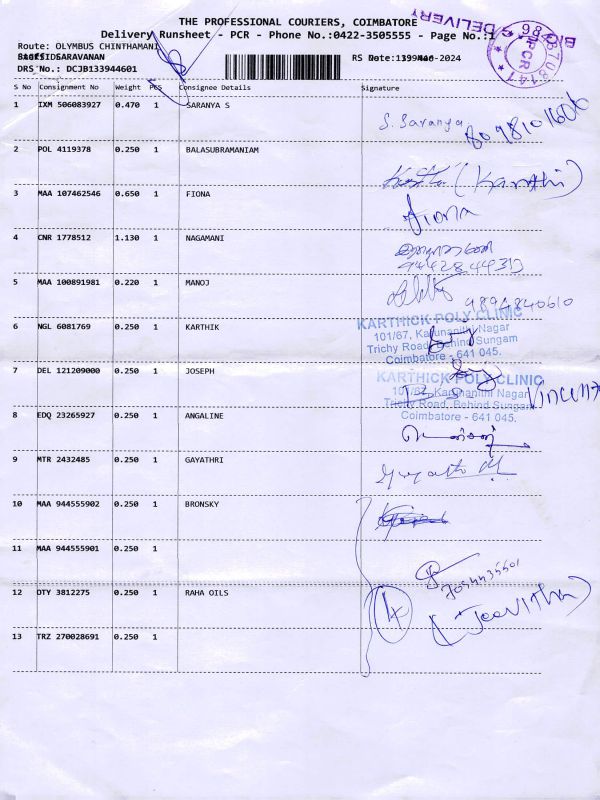 THE PROFESSIONAL COURIERS, COIMBATORE
Delivery Runsheet - PCR - Phone No.:0422-3505555 - Page No.:1
BIG S DELIVERY
PCR
Route: OLYMBUS CHINTHAMANI
SARAVANAN
DRS No.: DCJB133944601
S No Consignment No Weight PCS Consignee Details Signature
1 IXM 506083927 0.470 1 SARANYA S S. Saranya
2 POL 4119378 0.250 1 BALASUBRAMANIAM (Karthi)
3 MAA 107462546 0.650 1 FIONA Fiona
4 CNR 1778512 1.130 1 NAGAMANI
9442844313
5 MAA 100891981 0.220 1 MANOJ 9894840610
6 NGL 6081769 0.250 1 KARTHIK
KARTHICK POLY CLINIC
101/67, Karunanithi Nagar
Trichy Road, Behind Sungam
Coimbatore - 641 045.
7 DEL 121209000 0.250 1 JOSEPH
KARTHICK POLY CLINIC
101/67, Karunanithi Nagar
Trichy Road, Behind Sungam
Coimbatore - 641 045.
8 EDQ 23265927 0.250 1 ANGALINE
9 MTR 2432485 0.250 1 GAYATHRI
10 MAA 944555902 0.250 1 BRONSKY
11 MAA 944555901 0.250 1
12 OTY 3812275 0.250 1 RAHA OILS 4 (Jeevitha)
13 TRZ 270028691 0.250 1